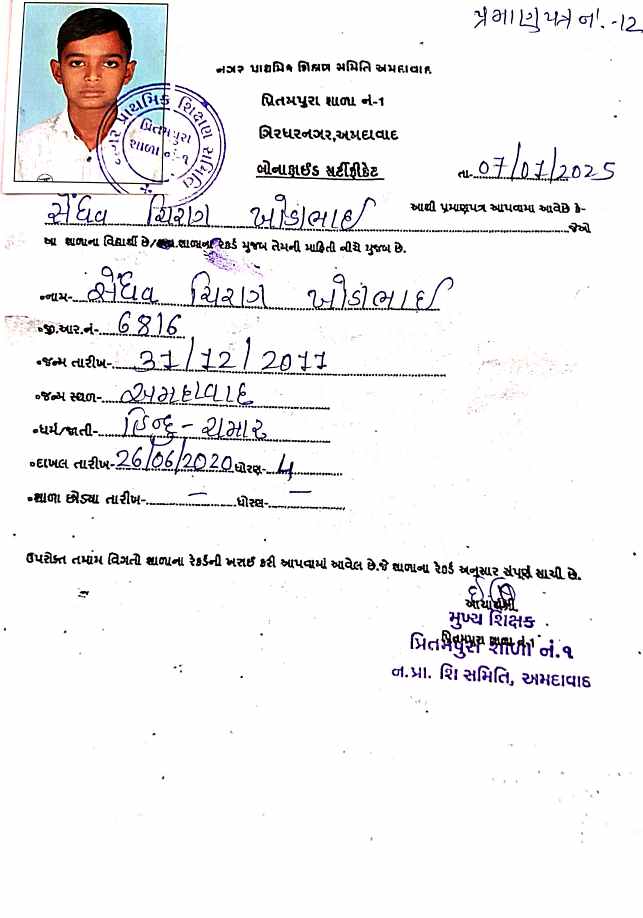 પ્રમાણપત્ર નં. -12
નગર પ્રાથમિક શિક્ષણ સમિતિ અમદાવાદ
પ્રિતમપુરા શાળા નં-1
ગિરધરનગર,અમદાવાદ
બોનાફાઈડ સર્ટીફીકેટ
તા-07/07/2025
નગર પ્રાથમિક શિક્ષણ સમિતિ
પ્રિતમપુરા
શાળા નં.-૧
આથી પ્રમાણપત્ર આપવામા આવેછે કે-
સેંધવ ચિરાગ ખોડાભાઈ જેઓ
આ શાળાના વિદ્યાર્થી છે/ શાળાના રેકર્ડ મુજબ તેમની માહિતી નીચે મુજબ છે.
•નામ- સેંધવ ચિરાગ ખોડાભાઈ
•જી.આર.નં- 6816
•જન્મ તારીખ- 31/12/2011
•જન્મ સ્થળ- અમદાવાદ
•ધર્મ/જાતી- હિન્દુ - ચમાર
•દાખલ તારીખ- 26/06/2020 ધોરણ- 4
•શાળા છોડ્યા તારીખ- — ધોરણ- —
ઉપરોક્ત તમામ વિગતો શાળાના રેકર્ડની ખરાઈ કરી આપવામાં આવેલ છે.જે શાળાના રેકર્ડ અનુસાર સંપૂર્ણ સાચી છે.
આચાર્યશ્રી
મુખ્ય શિક્ષક
પ્રિતમપુરા શાળા નં.૧
ન.પ્રા. શિ સમિતિ, અમદાવાદ